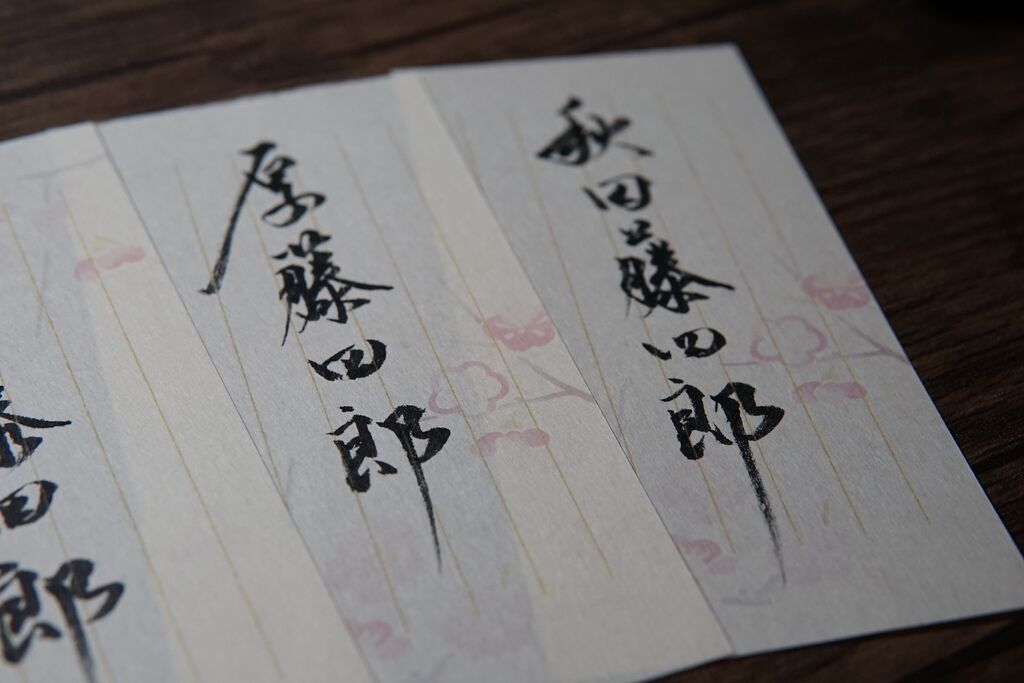 秋田藤四郎
厚藤四郎
藤四郎